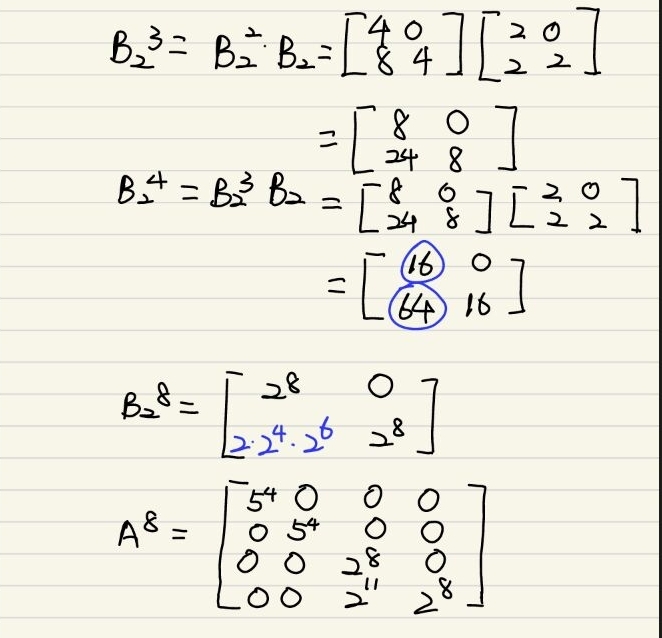 B₂³ = B₂²·B₂ = [4 0; 8 4] [2 0; 2 2]
= [8 0; 24 8]
B₂⁴ = B₂³ B₂ = [8 0; 24 8] [2 0; 2 2]
= [16 0; 64 16]
B₂⁸ = [2⁸ 0; 2·2⁴·2⁶ 2⁸]
A⁸ = [5⁴ 0 0 0; 0 5⁴ 0 0; 0 0 2⁸ 0; 0 0 2¹¹ 2⁸]